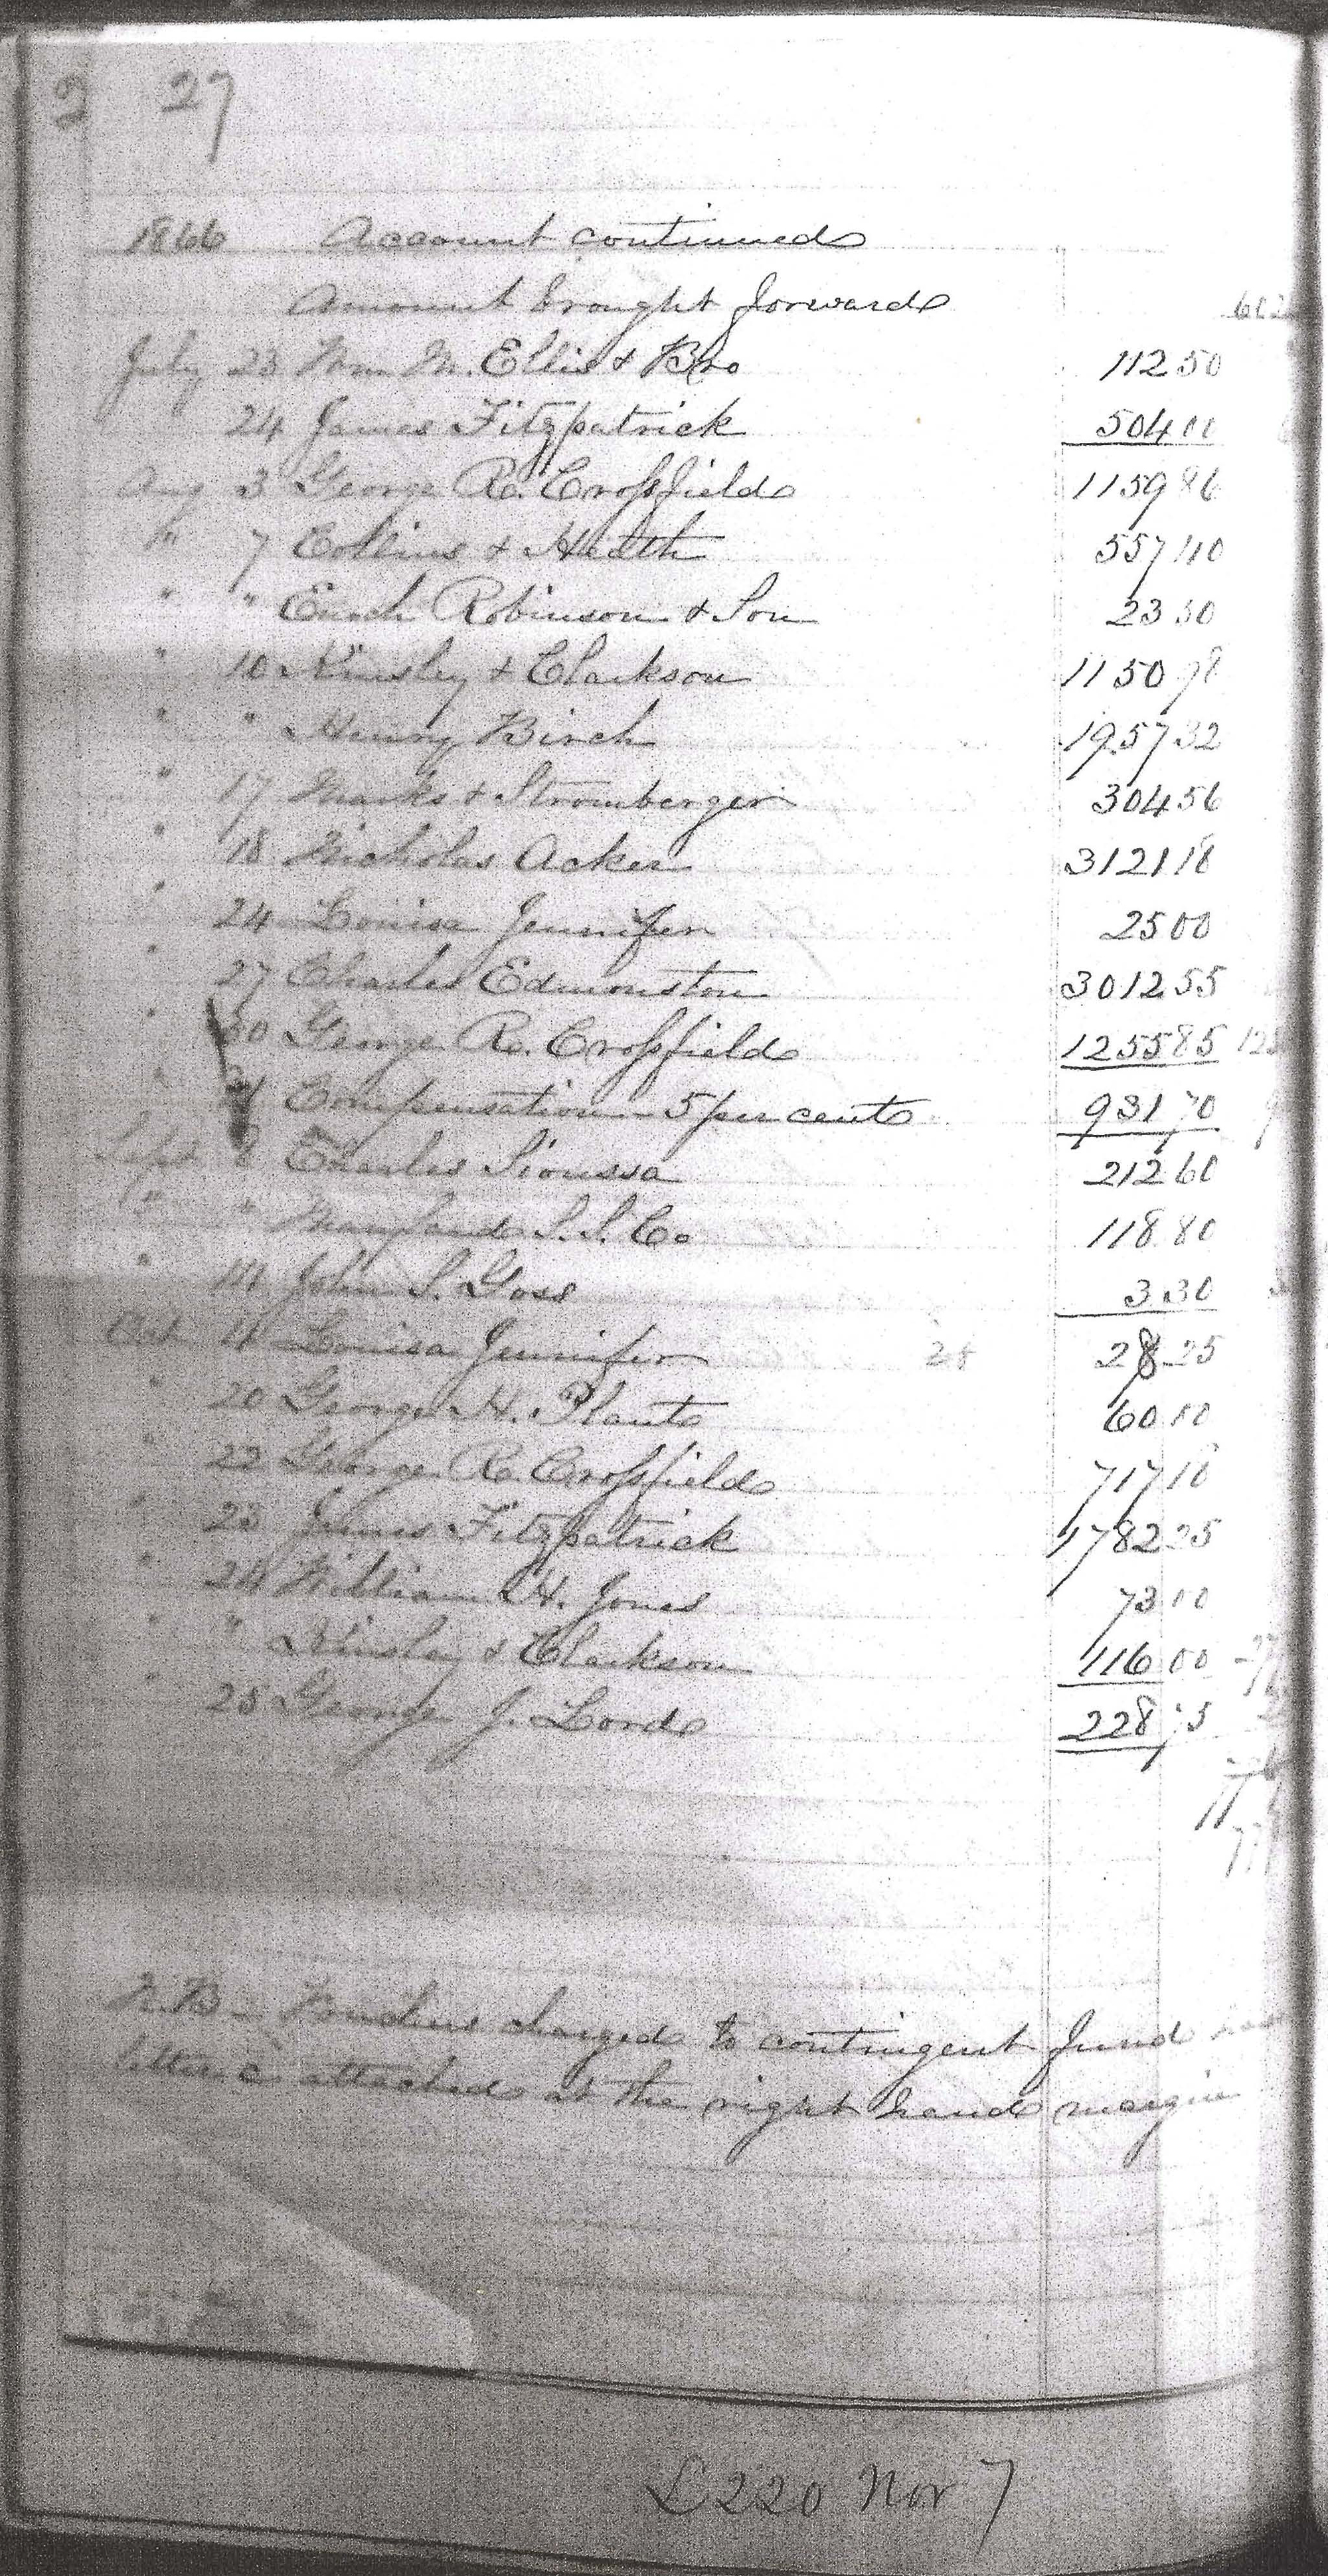 2 27
1866 Account continued
Amount brought forward
July 23 Wm M. Ellis & Bro 112 50
24 James Fitzpatrick 504 00
Aug 3 George R. Crossfield 1159 86
" 7 Collins & Heath 557 10
" " Enoch Robinson & Son 23 50
" 10 Kinsley & Clarkson 1150
" " Henry Birch 1957 32
" 17 Marks & Stromberger 304 56
" 18 Nicholas Acker 3121 18
" 24 Louisa Jennifer 25 00
" 27 Charles Edmonston 3012 55
" 30 George R. Crossfield 1255 85
" 31 Compensation - 5 per cent 931 70
Sept 8 Charles Sioussa 212 60
" " Maryland S. S. Co 118 80
" 14 John S. Goss 3 30
Oct 11 Louisa Jennifer 28 28 25
" 20 George H. Plant 60 10
" 22 George R. Crossfield 717 18
" 23 James Fitzpatrick 1782 25
" 24 William H. Jones 73 10
" " Kinsley & Clarkson 116 00
" 25 George J. Lord 228
N.B - charged to contingent fund
letter c attached at the right hand margin
L220 Nov 7